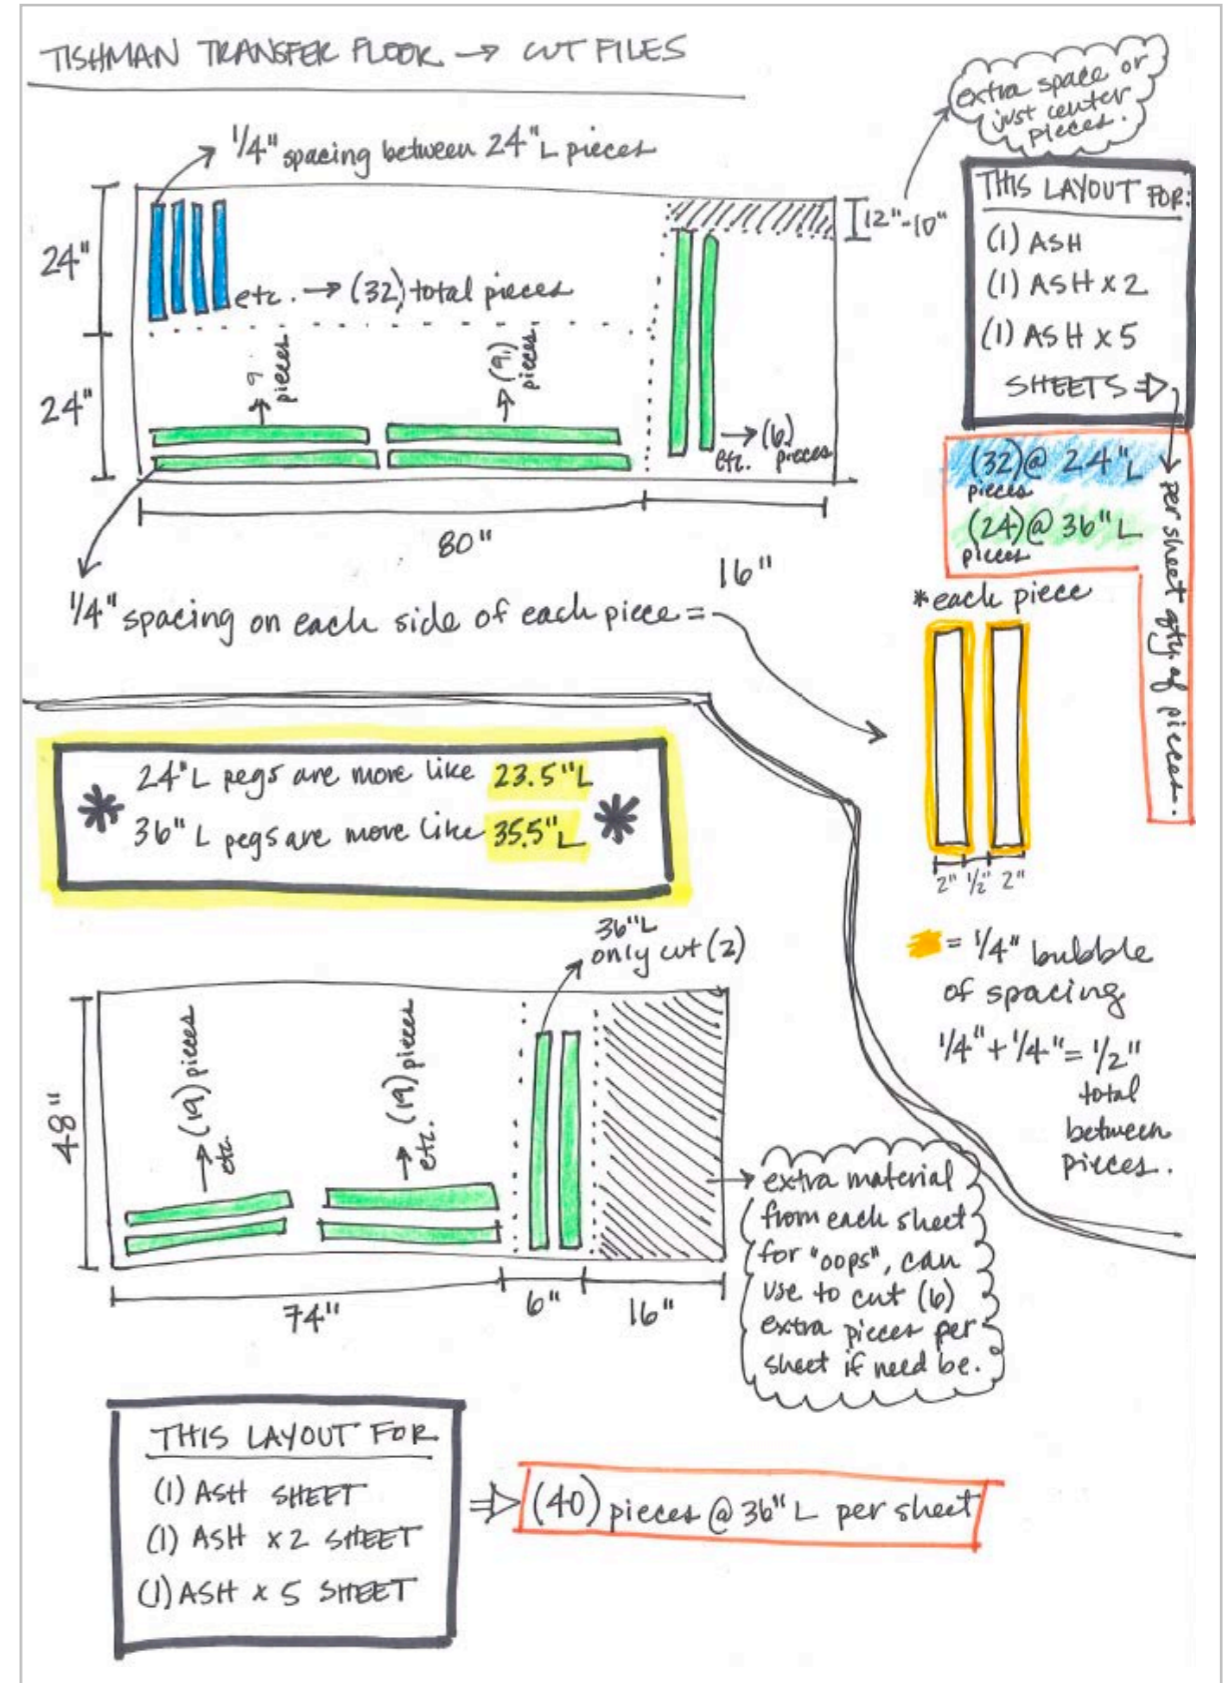 TISHMAN TRANSFER FLOOR → CUT FILES
extra space or
just center
pieces.
1/4" spacing between 24" L pieces
12"-10"
24"
etc. → (32) total pieces
24"
→ 9
pieces
→ (9)
pieces
→ (6)
etc. pieces
80"
16"
THIS LAYOUT FOR:
(1) ASH
(1) ASH x 2
(1) ASH x 5
SHEETS ⇒
(32) @ 24" L
pieces
(24) @ 36" L
pieces
per sheet qty of pieces.
1/4" spacing on each side of each piece =
*each piece
2" 1/2" 2"
= 1/4" bubble
of spacing
1/4" + 1/4" = 1/2"
total
between
pieces.
* 24" L pegs are more like 23.5" L
36" L pegs are more like 35.5" L *
36" L
only cut (2)
48"
→ (19) pieces
etc.
→ (19) pieces
etc.
74"
6"
16"
extra material
from each sheet
for "oops", can
use to cut (6)
extra pieces per
sheet if need be.
THIS LAYOUT FOR
(1) ASH SHEET
(1) ASH x 2 SHEET
(1) ASH x 5 SHEET
⇒ (40) pieces @ 36" L per sheet